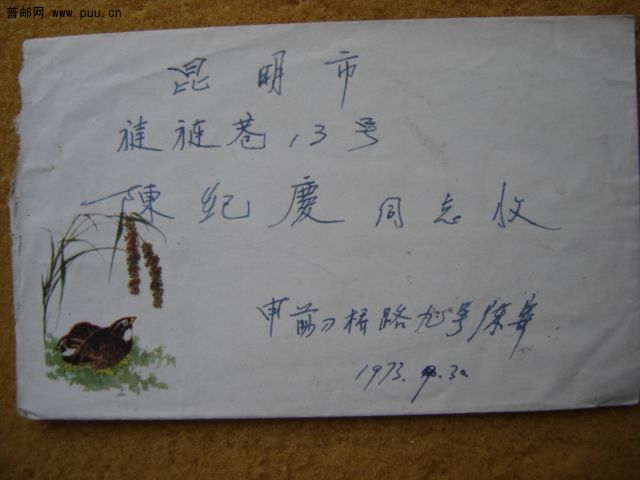 普邮网 www.puu.cn
昆明市
裢裢巷13号
陳纪慶同志收
申前刀桥路九号陈
1973. 30